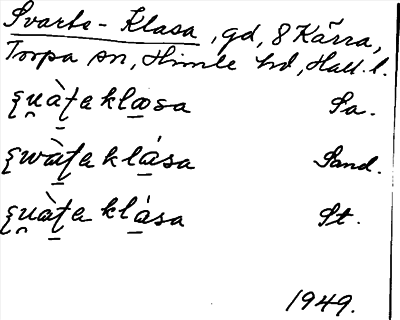 Svarte-Klasa, gd, 8 Kärra,
Torpa sn, Himle hd, Hall. l.
ʂu̯àʈa klasa Sa.
ʂwàʈa klása Sand.
ʂu̯àʈa klása St.
1949.